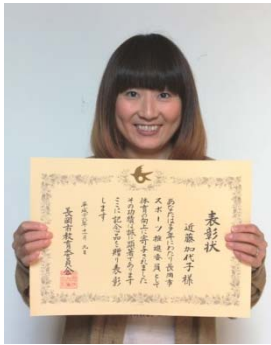 表彰状
近藤加代子様
あなたは多年にわたり長岡市
スポーツ推進委員として
体育の向上に寄与されました
その功績は誠に顕著であります
ここに記念品を贈り表彰
します
長岡市教育委員会